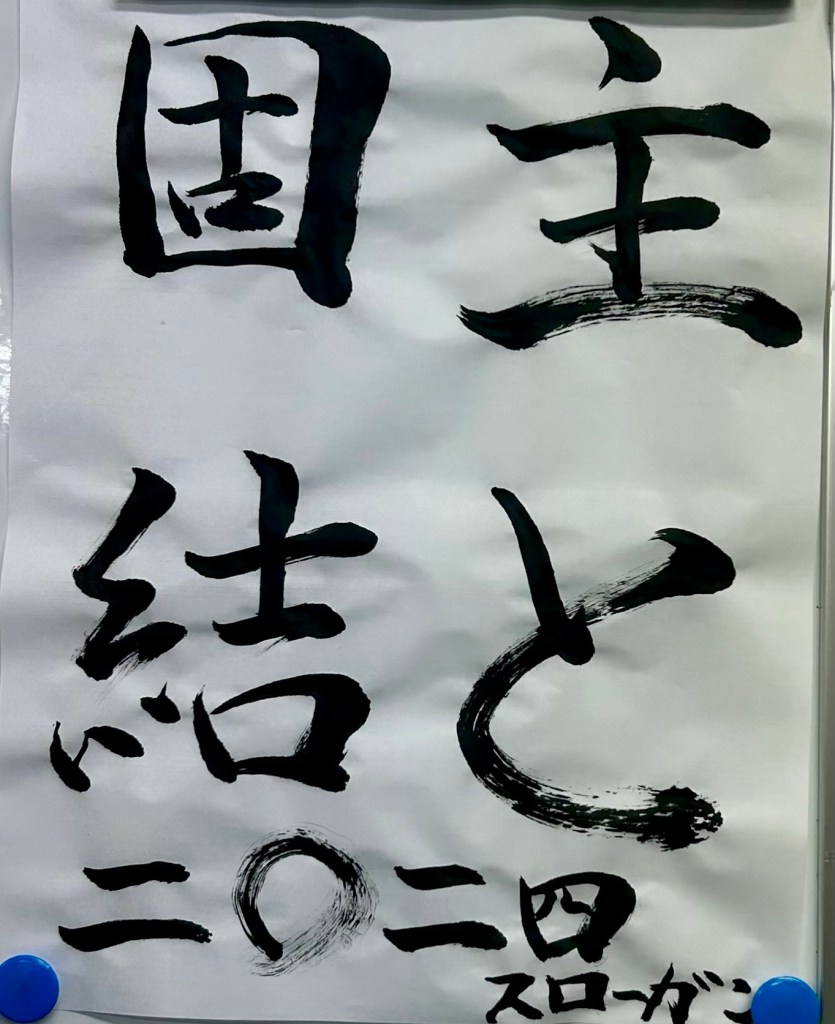 主と
固結
二〇二四
スローガン